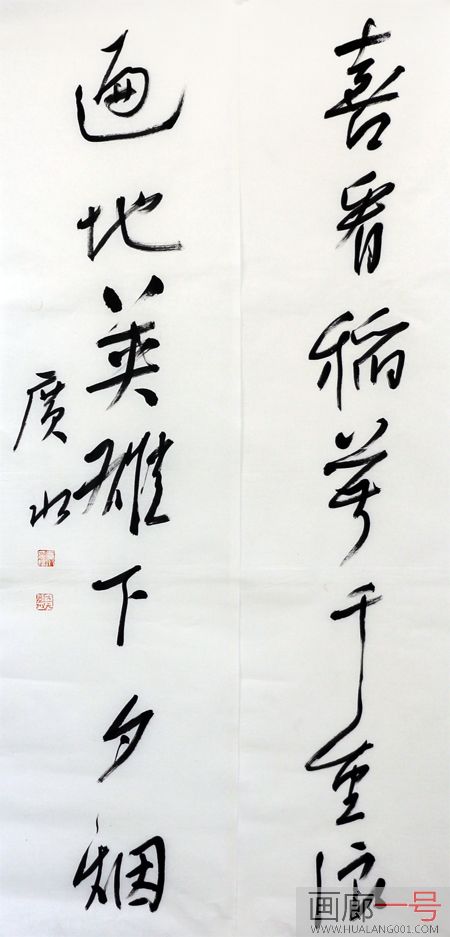 喜看稻菽千重浪
遍地英雄下夕烟
廣
画廊一号
WWW.HUALANG001.COM